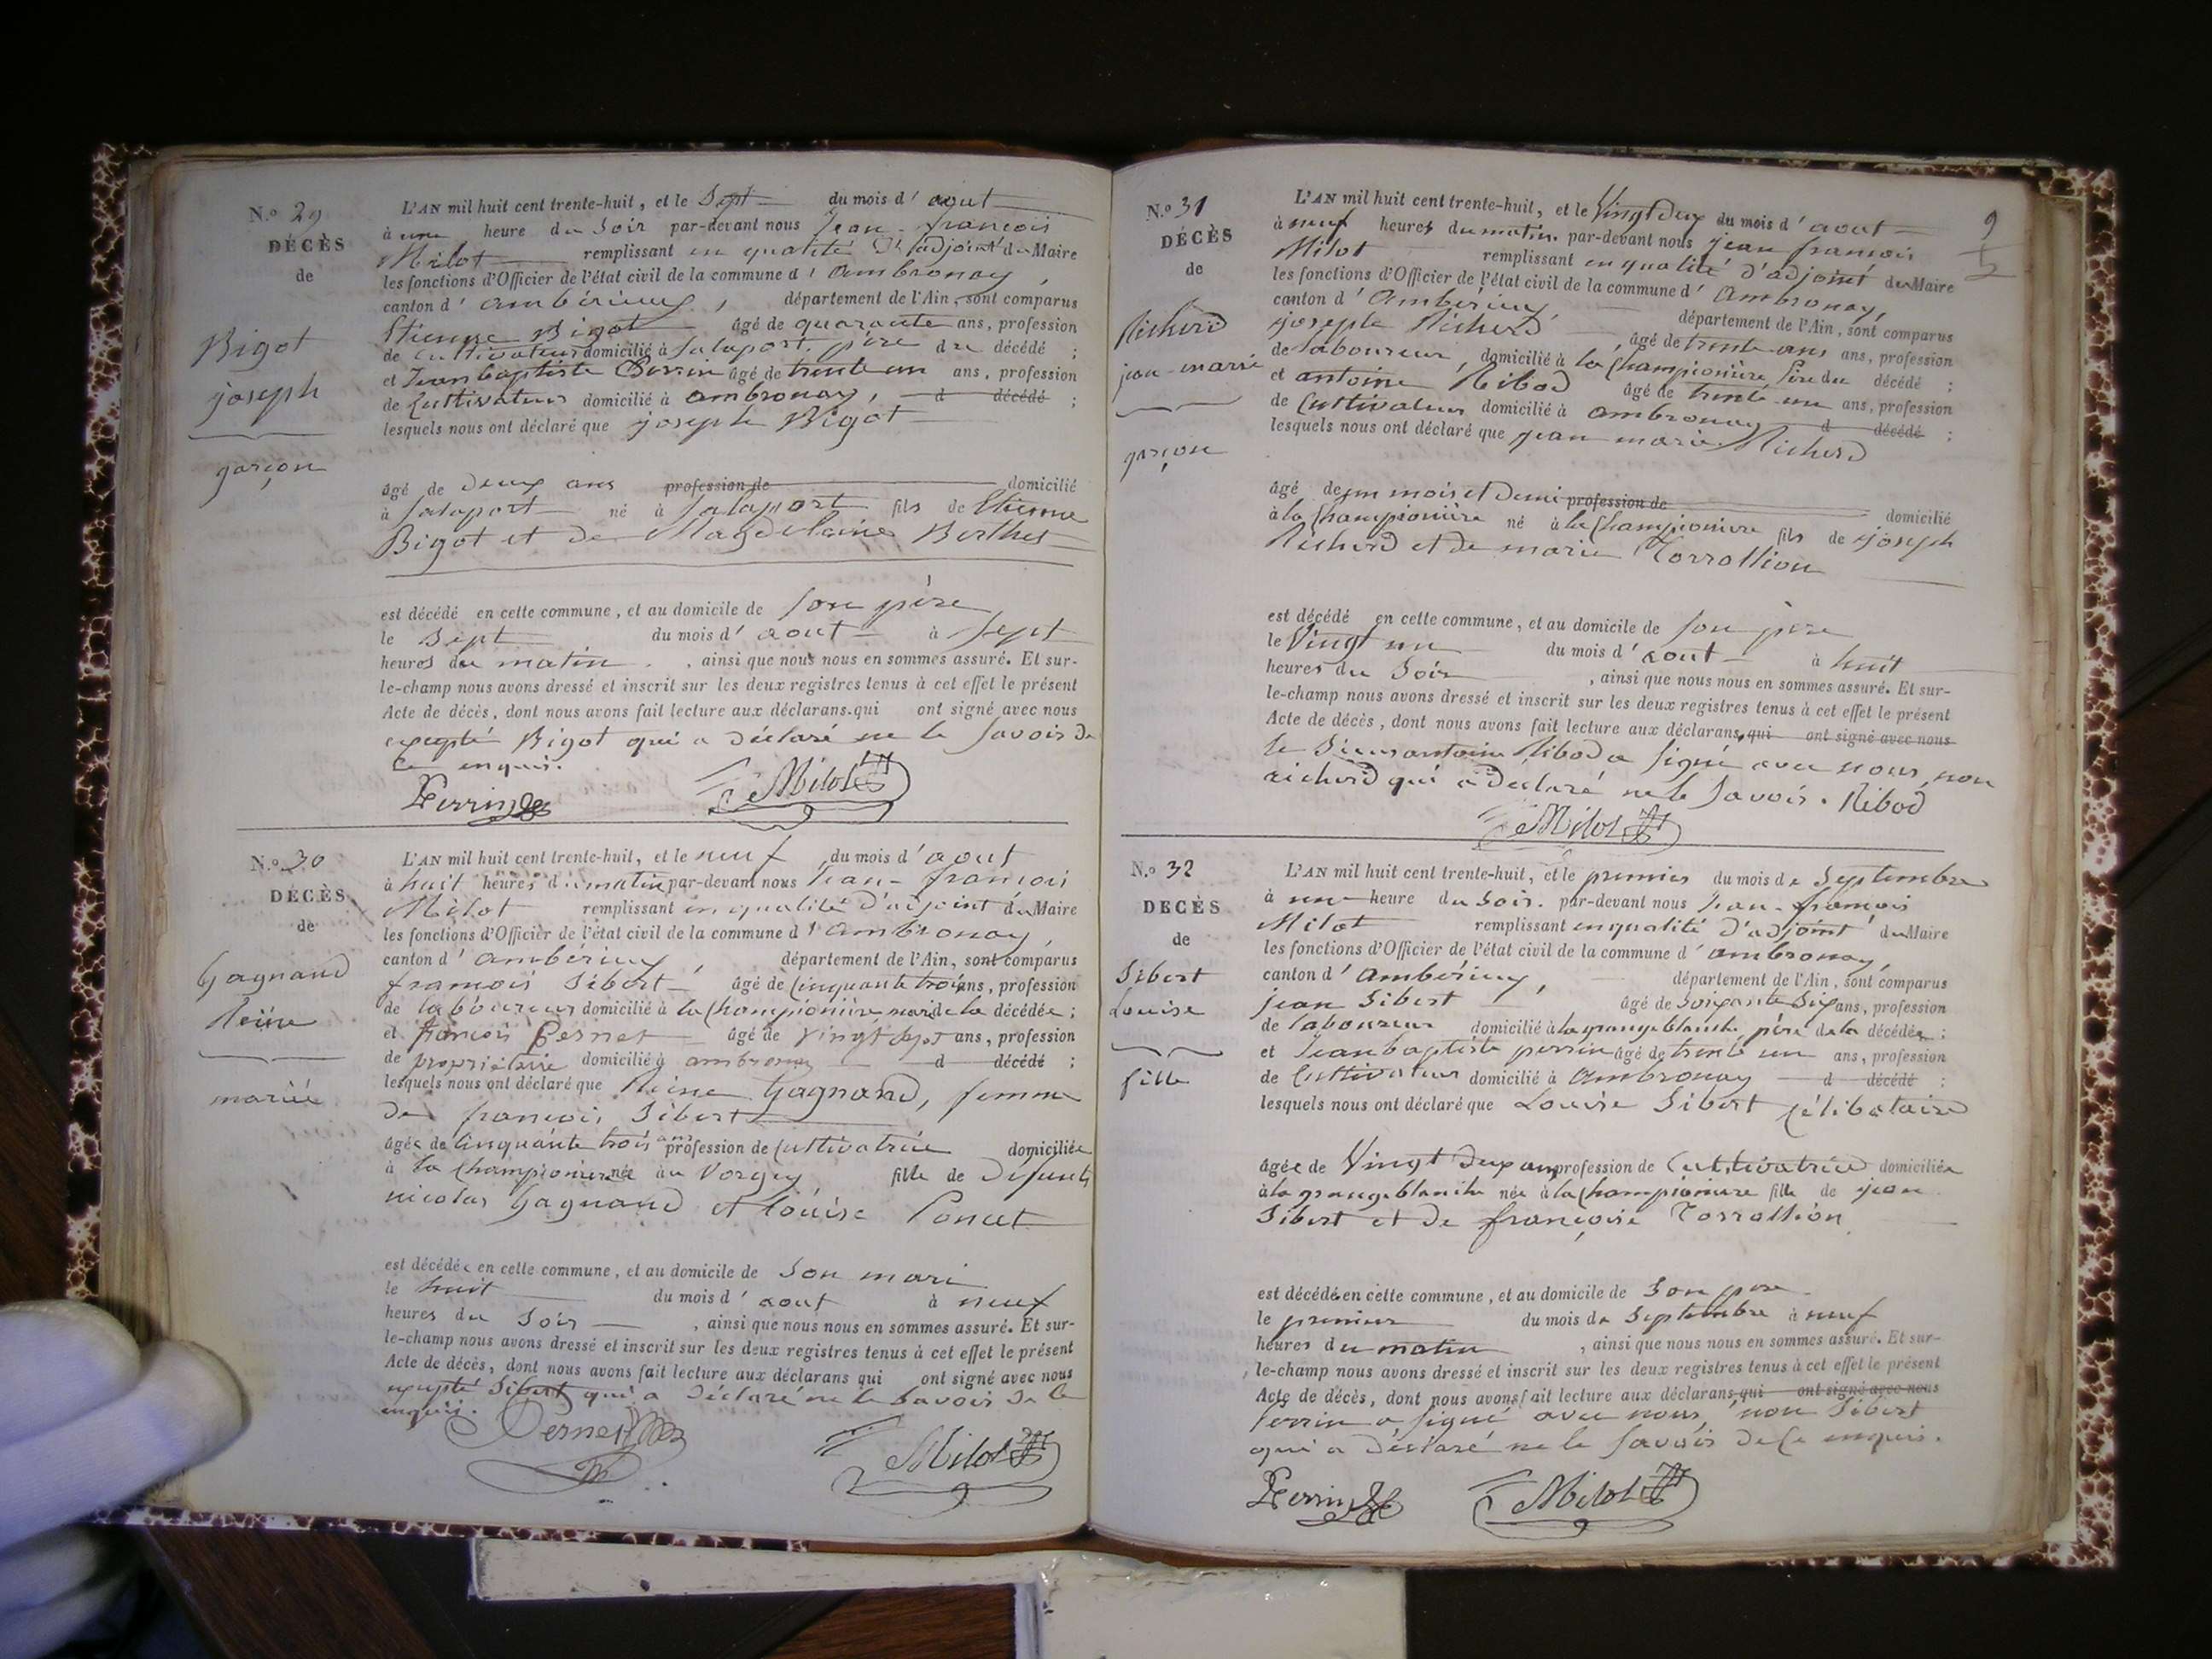 N.o 29
DÉCÈS
de
Bigot
joseph
garçon
L'AN mil huit cent trente-huit, et le Sept du mois d'aout
à une heure du Soir par-devant nous Jean-francois
Milot remplissant en qualité d'adjoint du Maire
les fonctions d'Officier de l'état civil de la commune d'ambronay,
canton d'ambérieux, département de l'Ain, sont comparus
Etienne Bigot âgé de quarante ans, profession
de cultivateur domicilié à Salaport, père du décédé ;
et Jean baptiste Perrin âgé de trente un ans, profession
de Cultivateur domicilié à ambronay, d décédé ;
lesquels nous ont déclaré que joseph Bigot
âgé de deux ans profession de domicilié
à Salaport né à Salaport fils de Etienne
Bigot et de Magdelaine Berthet
est décédé en cette commune, et au domicile de Son père
le Sept du mois d'aout à Sept
heures du matin, ainsi que nous nous en sommes assuré. Et sur-
le-champ nous avons dressé et inscrit sur les deux registres tenus à cet effet le présent
Acte de décès, dont nous avons fait lecture aux déclarans qui ont signé avec nous
excepté Bigot qui a déclaré ne le Savoir de
Ce enquis.
Perrin Milot
N.o 30
DÉCÈS
de
Gagnand
Reine
mariée
L'AN mil huit cent trente-huit, et le neuf du mois d'aout
à huit heures du matin par-devant nous Jean-francois
Milot remplissant en qualité d'adjoint du Maire
les fonctions d'Officier de l'état civil de la commune d'ambronay,
canton d'ambérieux, département de l'Ain, sont comparus
francois Sibert âgé de Cinquante trois ans, profession
de laboureur domicilié à la Championière mari de la décédée ;
et francois Pernet âgé de Vingt Sept ans, profession
de propriétaire domicilié à ambronay d décédé ;
lesquels nous ont déclaré que Reine Gagnand, femme
de francois Sibert
âgée de Cinquante trois ans profession de Cultivatrice domiciliée
à la Championière née au Vorgey fille de Défunts
nicolas Gagnand et Louise Poncet
est décédée en cette commune, et au domicile de Son mari
le huit du mois d'aout à neuf
heures du Soir, ainsi que nous nous en sommes assuré. Et sur-
le-champ nous avons dressé et inscrit sur les deux registres tenus à cet effet le présent
Acte de décès, dont nous avons fait lecture aux déclarans qui ont signé avec nous
excepté Sibert qui a déclaré ne le Savoir de Ce
enquis.
Pernet Milot
9
N.o 31
DÉCÈS
de
Richerd
jean-marie
garçon
L'AN mil huit cent trente-huit, et le Vingt deux du mois d'aout
à neuf heures du matin par-devant nous jean francois
Milot remplissant en qualité d'adjoint du Maire
les fonctions d'Officier de l'état civil de la commune d'Ambronay,
canton d'Ambérieux, département de l'Ain, sont comparus
joseph Richerd, âgé de trente ans ans, profession
de laboureur, domicilié à la Championière, Père du décédé ;
et antoine Ribod âgé de trente un ans, profession
de Cultivateur domicilié à ambronay d décédé ;
lesquels nous ont déclaré que jean marie Richerd
âgé de un mois et demi profession de domicilié
à la Championière né à la Championiere fils de joseph
Richerd et de marie Torrollion
est décédé en cette commune, et au domicile de Son père
le Vingt un du mois d'aout à huit
heures du Soir, ainsi que nous nous en sommes assuré. Et sur-
le-champ nous avons dressé et inscrit sur les deux registres tenus à cet effet le présent
Acte de décès, dont nous avons fait lecture aux déclarans, qui ont signé avec nous
le Sieur antoine Ribod a Signé avec nous, non
richerd qui a Declaré ne le Savoir. Ribod
Milot
N.o 32
DÉCÈS
de
Sibert
Louise
fille
L'AN mil huit cent trente-huit, et le premier du mois de Septembre
à une heure du Soir. par-devant nous Jean-francois
Milot remplissant en qualité d'adjoint du Maire
les fonctions d'Officier de l'état civil de la commune d'ambronay,
canton d'ambérieux, département de l'Ain, sont comparus
Jean Sibert âgé de Soixante Six ans, profession
de laboureur domicilié à la grange blanche, père de la décédée ;
et Jean baptiste perrin âgé de trente un ans, profession
de Cultivateur domicilié à Ambronay d décédé ;
lesquels nous ont déclaré que Louise Sibert Célibataire
âgée de Vingt Deux ans profession de Cultivatrice domiciliée
à la grange blanche née à la Championiere fille de jean
Sibert et de françoise Torrollion
est décédée en cette commune, et au domicile de Son pere
le premier du mois de Septembre à neuf
heures du matin, ainsi que nous nous en sommes assuré. Et sur-
le-champ nous avons dressé et inscrit sur les deux registres tenus à cet effet le présent
Acte de décès, dont nous avons fait lecture aux déclarans qui ont signé avec nous
Perrin a Signé avec nous, non Sibert
qui a Déclaré ne le Savoir de Ce enquis.
Perrin Milot